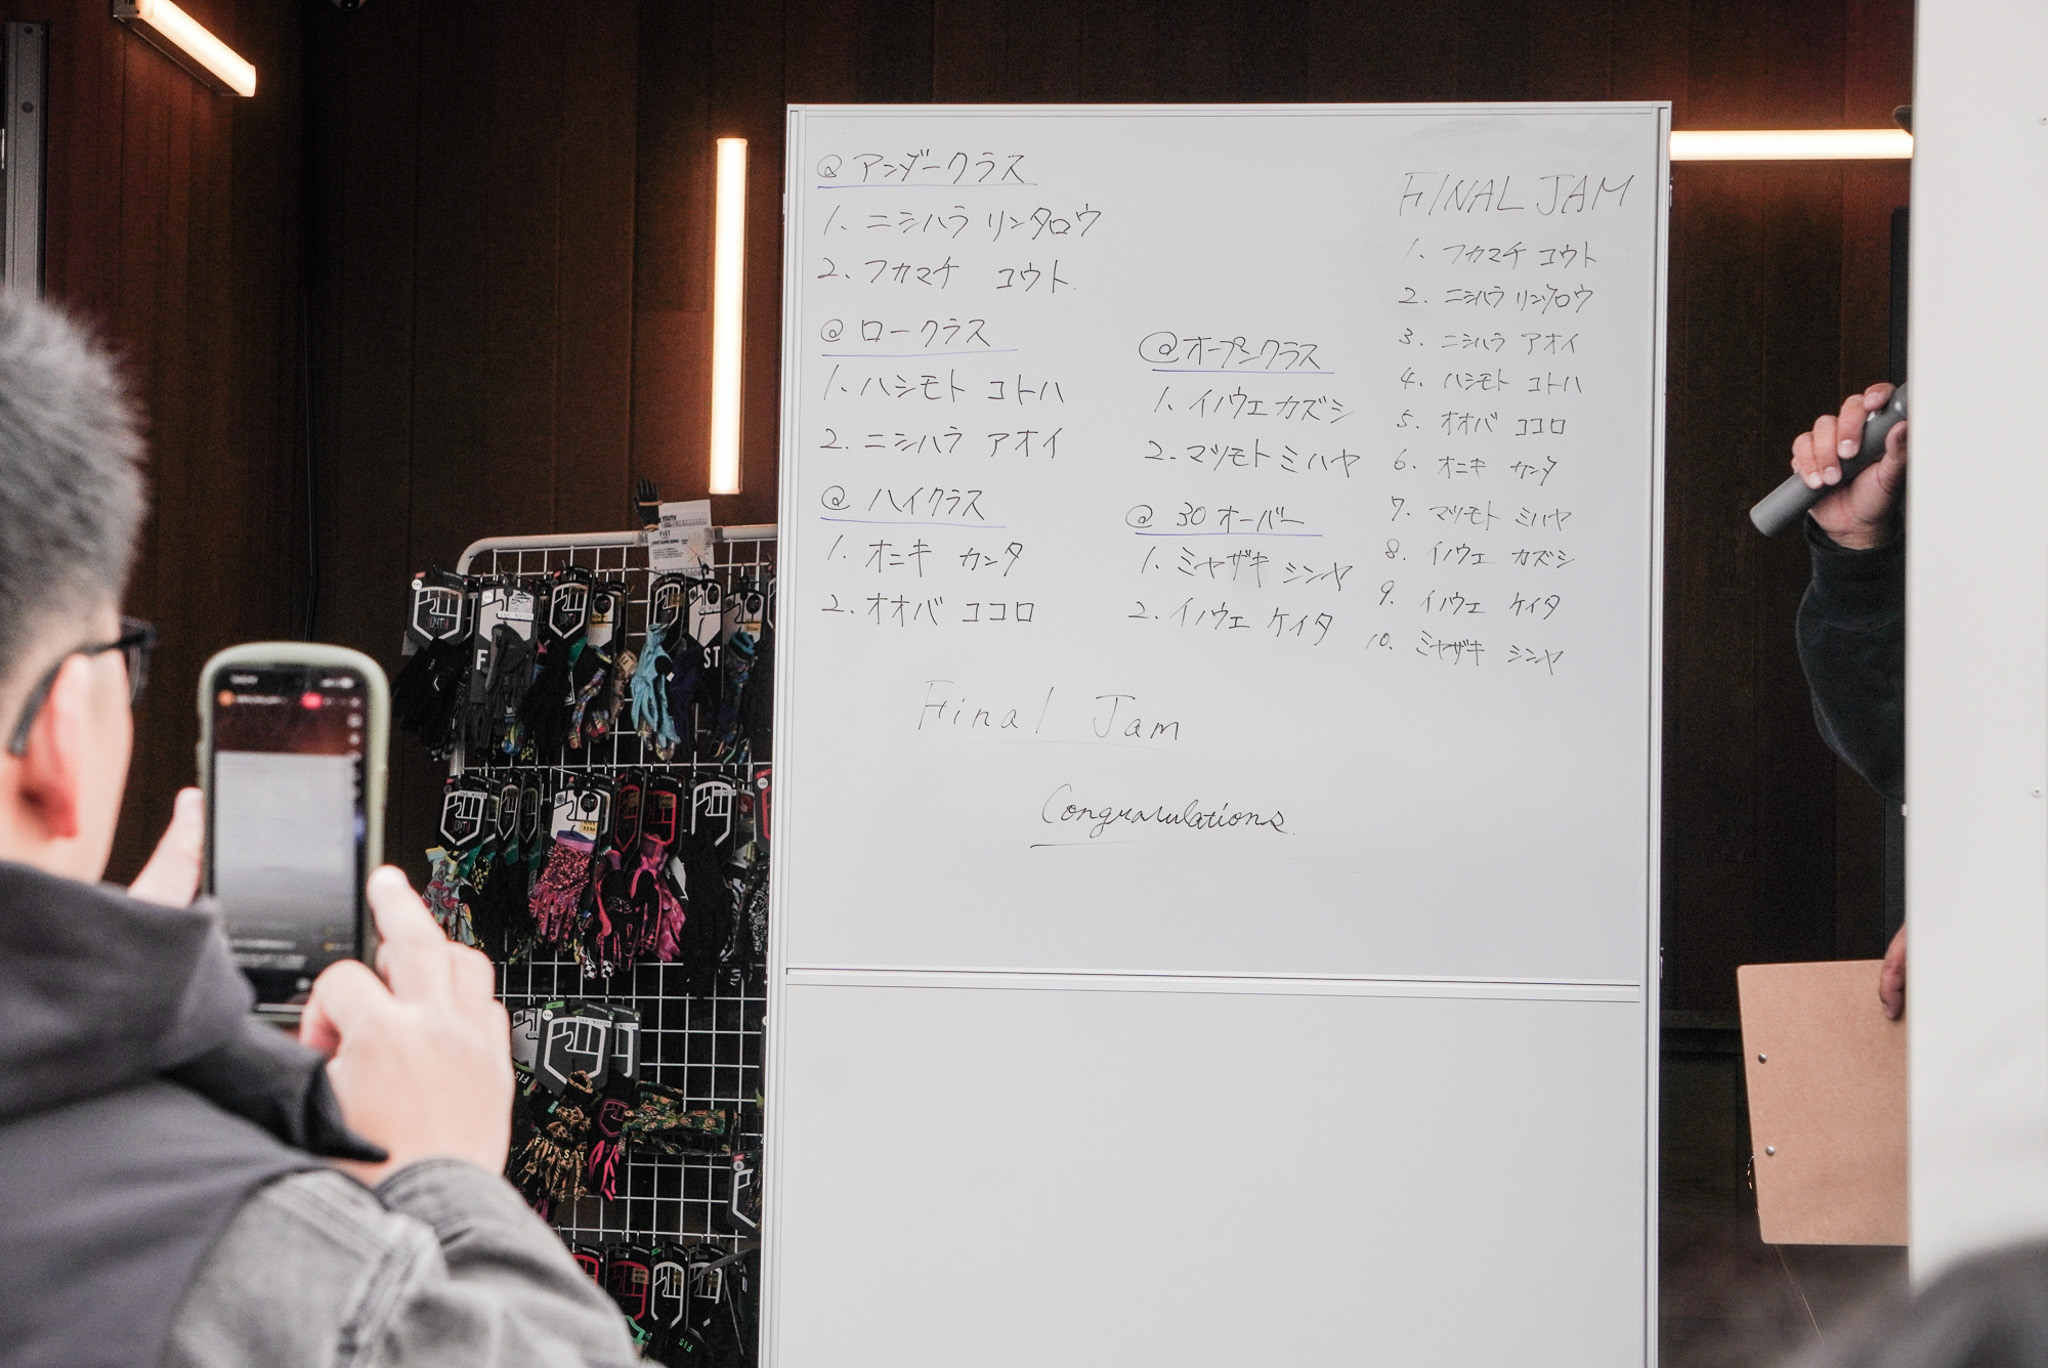 @ アンダークラス
1. ニシハラ リンタロウ
2. フカマチ コウト
@ ロークラス
1. ハシモト コトハ
2. ニシハラ アオイ
@ ハイクラス
1. オニキ カンタ
2. オオバ ココロ
@ オープンクラス
1. イノウエ カズシ
2. マツモト ミハヤ
@ 30オーバー
1. ミヤザキ シンヤ
2. イノウエ ケイタ
Final Jam
Congrarulations.
FINAL JAM
1. フカマチ コウト
2. ニシハラ リンタロウ
3. ニシハラ アオイ
4. ハシモト コトハ
5. オオバ ココロ
6. オニキ カンタ
7. マツモト ミハヤ
8. イノウエ カズシ
9. イノウエ ケイタ
10. ミヤザキ シンヤ
ST
FIST